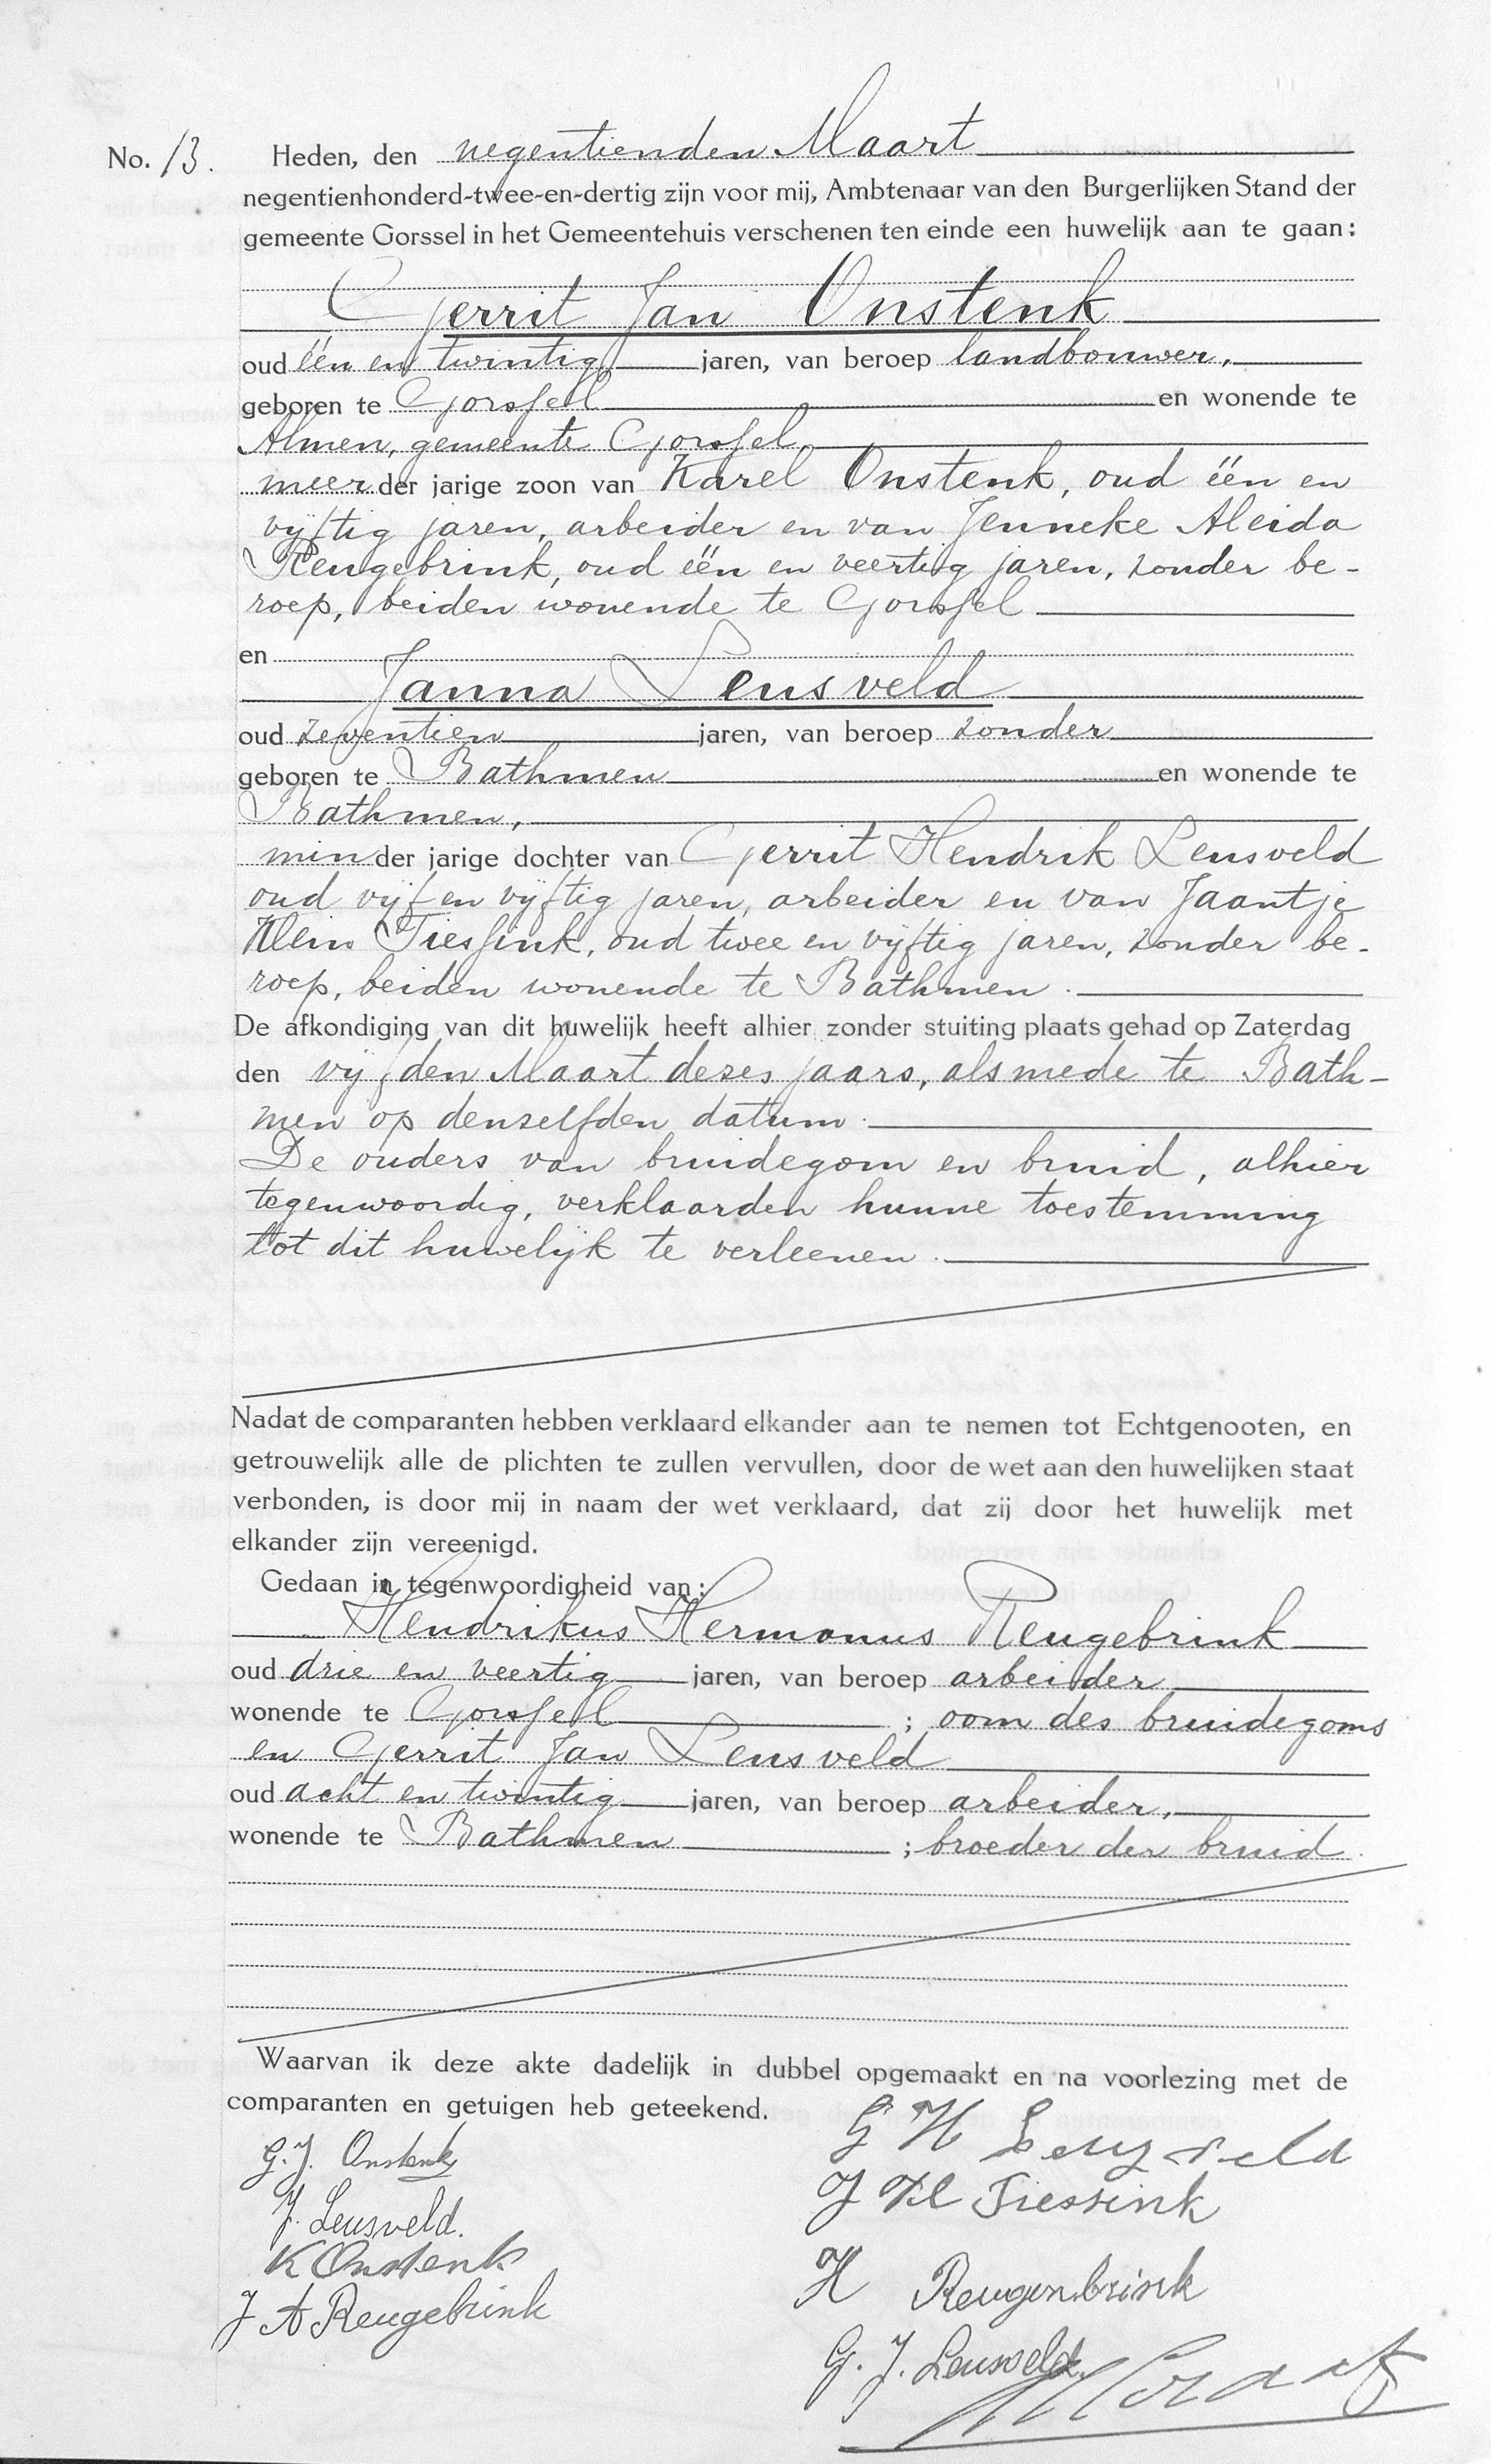 No. 13. Heden, den negentienden Maart
negentienhonderd-twee-en-dertig zijn voor mij, Ambtenaar van den Burgerlijken Stand der
gemeente Gorssel in het Gemeentehuis verschenen ten einde een huwelijk aan te gaan:
Gerrit Jan Onstenk
oud één en twintig jaren, van beroep landbouwer,
geboren te Gorssel en wonende te
Almen, gemeente Gorssel,
meerder jarige zoon van Karel Onstenk, oud één en
vijftig jaren, arbeider en van Jenneke Aleida
Reugebrink, oud één en veertig jaren, zonder be-
roep, beiden wonende te Gorssel
en
Janna Leusveld
oud zeventien jaren, van beroep zonder
geboren te Bathmen en wonende te
Bathmen,
minder jarige dochter van Gerrit Hendrik Leusveld
oud vijf en vijftig jaren, arbeider en van Jaantje
Klein Tiessink, oud twee en vijftig jaren, zonder be-
roep, beiden wonende te Bathmen.
De afkondiging van dit huwelijk heeft alhier zonder stuiting plaats gehad op Zaterdag
den vijfden Maart dezes jaars, alsmede te Bath-
men op denzelfden datum.
De ouders van bruidegom en bruid, alhier
tegenwoordig, verklaarden hunne toestemming
tot dit huwelijk te verleenen.
Nadat de comparanten hebben verklaard elkander aan te nemen tot Echtgenooten, en
getrouwelijk alle de plichten te zullen vervullen, door de wet aan den huwelijken staat
verbonden, is door mij in naam der wet verklaard, dat zij door het huwelijk met
elkander zijn vereenigd.
Gedaan in tegenwoordigheid van:
Hendrikus Hermanus Reugebrink
oud drie en veertig jaren, van beroep arbeider
wonende te Gorssel ; oom des bruidegoms
en Gerrit Jan Leusveld
oud acht en twintig jaren, van beroep arbeider,
wonende te Bathmen ; broeder der bruid.
Waarvan ik deze akte dadelijk in dubbel opgemaakt en na voorlezing met de
comparanten en getuigen heb geteekend.
G. J. Onstenk
J. Leusveld.
K Onstenk
J A Reugebrink
G H Leusveld
J Kl Tiessink
H Reugenbrink
G. J. Leusveld.